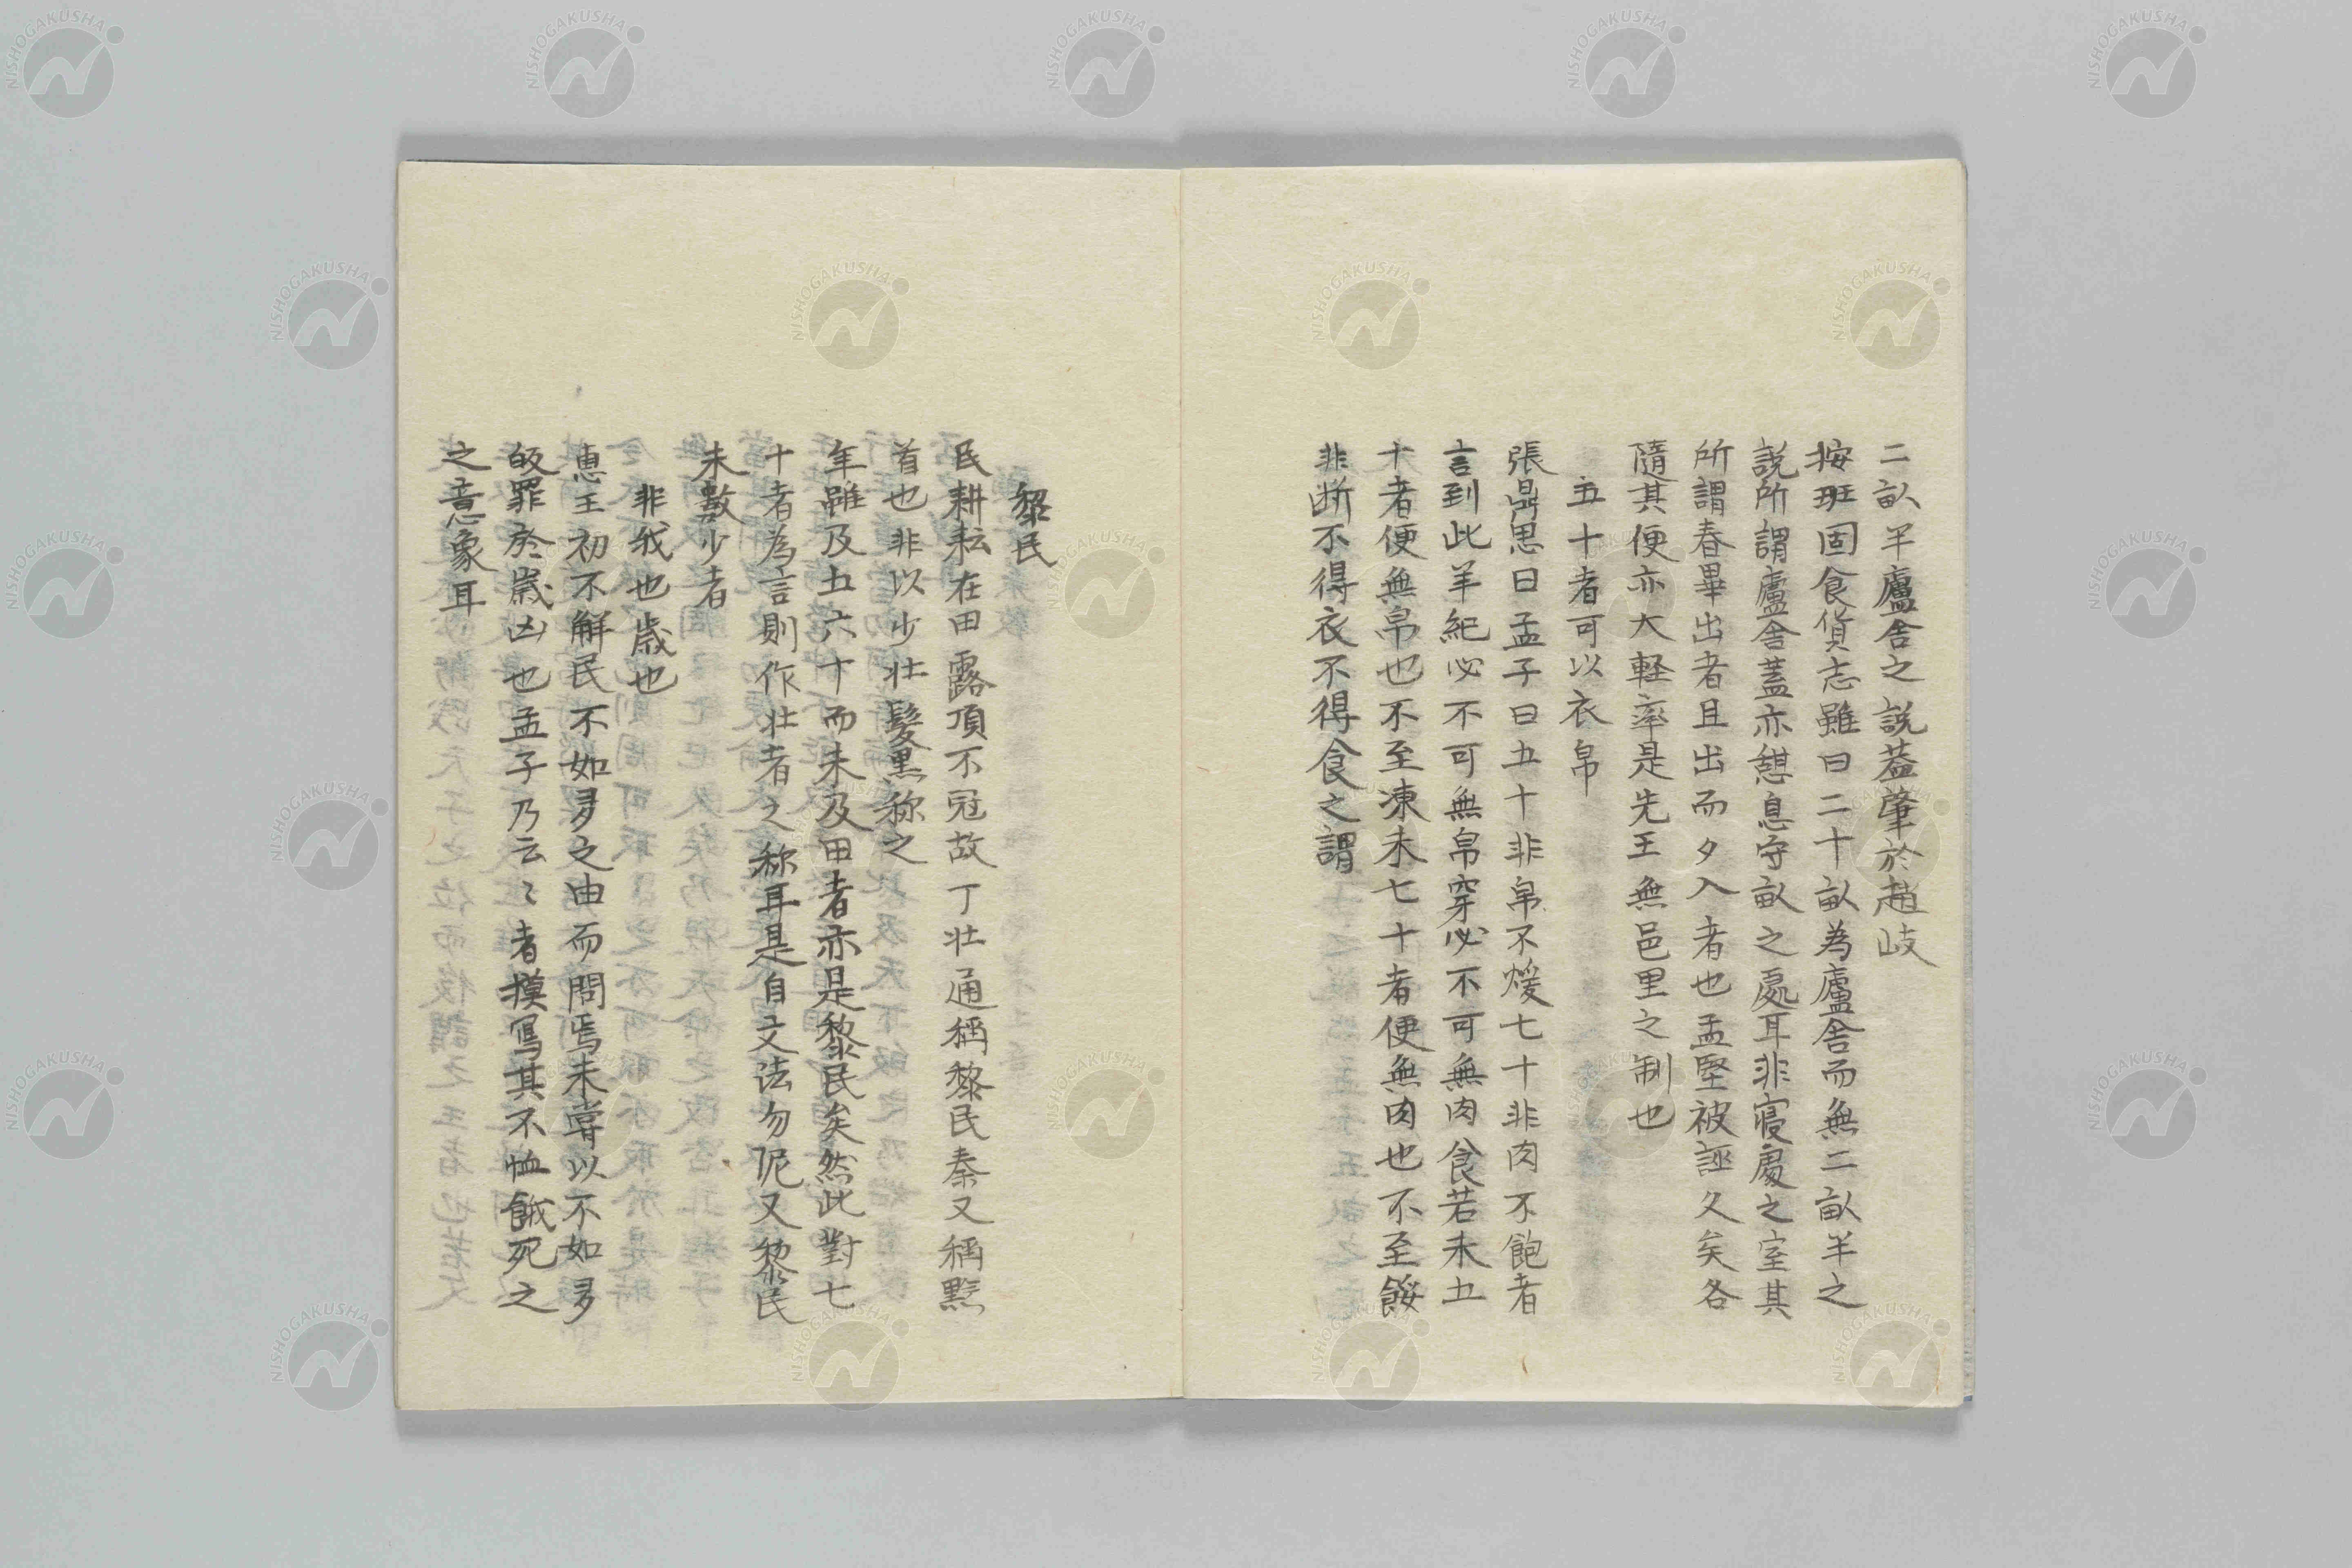 二畝半廬舎之説蓋肇於趙岐
按班固食貨志雖曰二十畝為廬舎而無二畝半之
説所謂廬舎蓋亦憩息守畝之處耳非寝處之室其
所謂春畢出者且出而夕入者也孟堅被誣久矣各
隨其便亦大軽率是先王無邑里之制也
五十者可以衣帛
張鼎思曰孟子曰五十非帛不煖七十非肉不飽者
言到此半紀必不可無帛穿必不可無肉食若未五
十者便無帛也不至凍未七十者便無肉也不至餒
非断不得衣不得食之謂
黎民
民耕耘在田露頂不冠故丁壮通稱黎民秦又稱黔
首也非以少壮髮黒称之
年雖及五六十而未及田者亦是黎民矣然此對七
十者為言則作壮者之称耳是自文法勿泥又黎民
未數少者
非我也歳也
恵王初不解民不如多之由而問焉未嘗以不如多
皈罪於歳凶也孟子乃云〻者摸寫其不恤餓死之
之意象耳
NISHOGAKUSHA